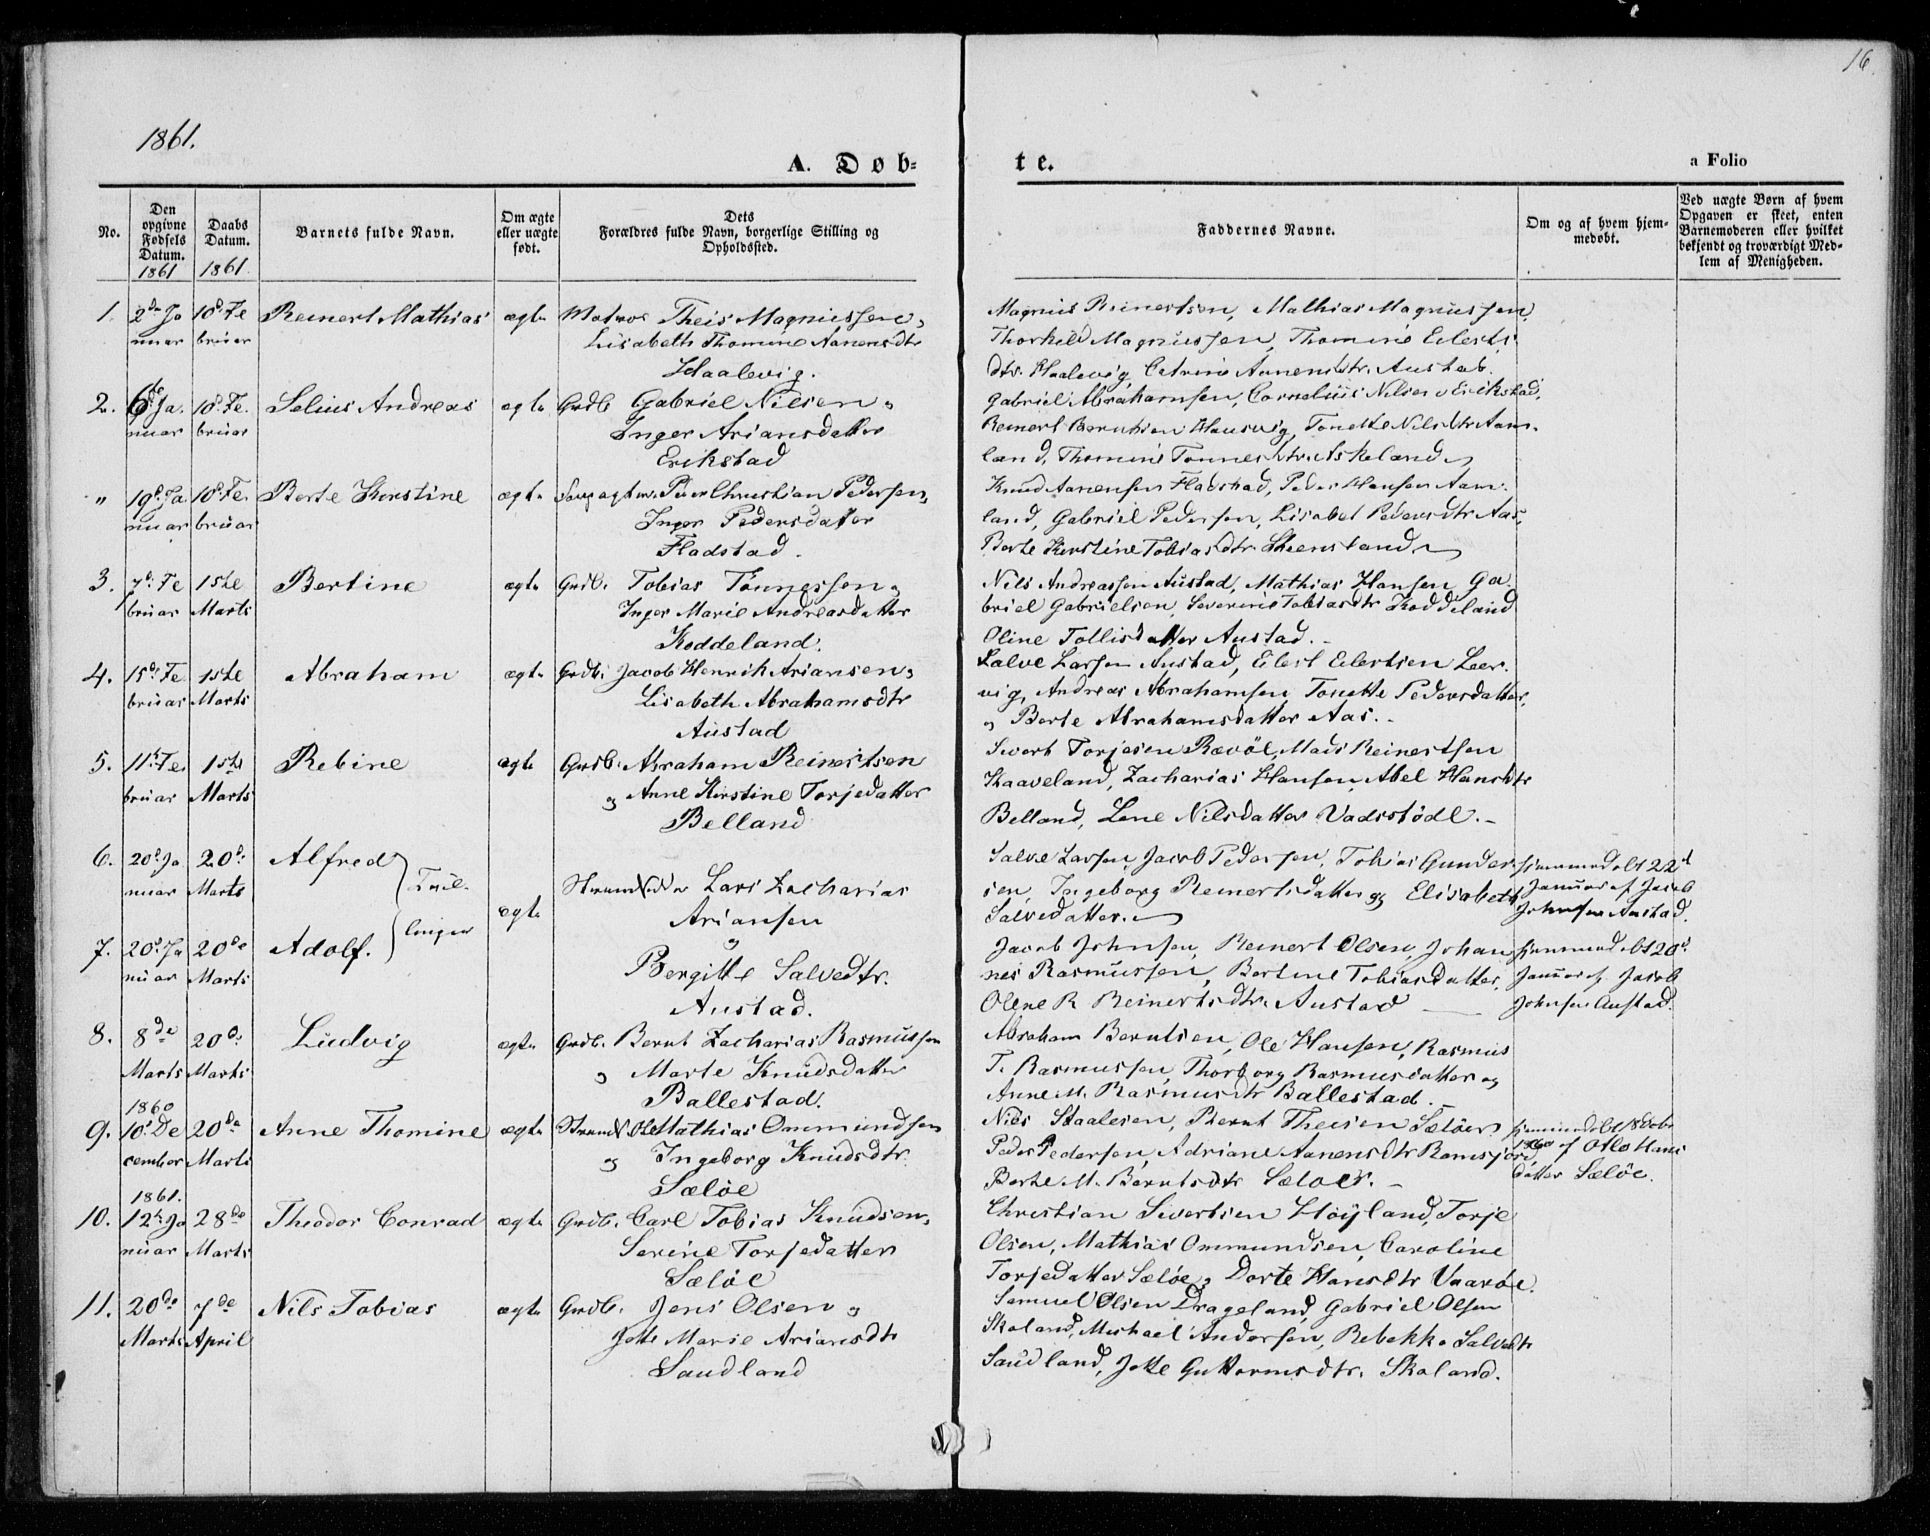 16
1861.
A. Døb-
te.
a Folio
No.
Den opgivne Fødsels Datum. 1861
Daabs Datum. 1861.
Barnets fulde Navn.
Om ægte eller uægte født.
Dets
Forældres fulde Navn, borgerlige Stilling og
Opholdssted.
Faddernes Navne.
Om og af hvem hjem-
medøbt.
Ved uægte Børn af hvem
Opgaven er skeet, enten
Barnemoderen eller hvilket
bekjendt og troværdigt Med-
lem af Menigheden.
1. 2de Ja 10d Fe Reinert Mathias ægte Matros Theis Magnussen,
nuar bruar Lisabeth Thomine Aanensdtr
Haalevig.
Magnus Reinertsen, Mathias Magnussen,
Thorkild Magnussen, Thomine Eilerts
dtr. Haalevig, Catrine Aanensdtr. Austad.
2. 6te Ja. 10d. Fe. Selius Andreas ægte Grdb. Gabriel Nilsen o
nuar bruar Inger Ariansdatter
Erikstad
Gabriel Abrahamsen, Cornelius Nilsen Erikstad,
Reinert Berntsen Hausvig, Tonette Nilsdtr Aam-
land, Thomine Tønnesdtr. Askeland
" 19d. Ja. 10d. Fe. Berte Kirstine ægte Peder Christian Pedersen,
nuar bruar Inger Pedersdatter
Fladstad.
Knud Aanensen Fladstad, Peder Hansen Aam-
land, Gabriel Pedersen, Lisabet Pedersdtr Aas,
Berte Kirstine Tobiasdtr. Steensland
3. 7d. Fe 1ste Bertine ægte Grdb. Tobias Tønnessen o
bruar Marts Inger Marie Andreasdatter
Koddeland.
Nils Andreassen Austad, Mathias Hansen, Ga-
briel Gabrielsen, Severine Tobiasdtr Koddeland
Oline Tollisdatter Austad.
4. 15d. Fe 1ste Abraham ægte Grdb. Jacob Henrik Ariansen o
bruar Marts Lisabeth Abrahamsdtr
Austad
Salve Larsen Austad, Eilert Eilertsen Leer-
vig, Andreas Abrahamsen, Tonette Pedersdatter,
o Berte Abrahamsdatter Aas.
5. 11te Fe. 1ste Rebine ægte Grdb. Abraham Reinertsen
bruar Marts o Anne Kirstine Torjedatter
Belland
Sivert Torjesen Rævöl, Mads Reinertsen
Kaaveland, Zacharias Hansen, Abel Hansdtr
Belland, Lene Nilsdatter Vadsstödl.
6. 20d. Ja 20d. Alfred
nuar Marts Tvil-
ægte Strandsidder Lars Zacharias
Ariansen
Salve Larsen, Jacob Pedersen, Tobias Gunder-
sen, Ingeborg Reinertsdatter og Elisabeth
Salvedatter.
hjemmedøbt 22d
Januar af Jacob
Johnsen Austad.
7. 20d. Ja 20de Adolf. linger
nuar Marts o
Bergitte Salvedtr.
Austad.
Jacob Johnsen, Reinert Olsen, Johan-
nes Rasmussen, Bertine Tobiasdatter,
Olene R Reinertsdtr. Austad
hjemmedøbt 20d.
Januar af Jacob
Johnsen Austad.
8. 8de 20d. Ludvig ægte Grdb. Bernt Zacharias Rasmussen
Marts Marts o Marte Knudsdatter
Ballestad.
Abraham Berntsen, Ole Hansen, Rasmus
T. Rasmussen, Thorborg Rasmusdatter og
Anne M. Rasmusdtr Ballestad.
1860
9. 10. De 20de Anne Thomine ægte Strands. Ole Mathias Ommundsen
cember Marts og Ingeborg Knudsdtr.
Sæløe
Nils Staalesen, Bernt Theisen Sæløer,
Peder Pedersen, Adriane Aanensdtr Ramsfjord,
Berte M. Berntsdtr Sæløer.
1860 af Otto Hans
datter Sæløe.
1861.
10. 12te Ja 28de Theodor Conrad ægte Grdb. Carl Tobias Knudsen o
nuar Marts Serine Torjedatter
Sæløe
Christian Sivertsen Høyland, Torje
Olsen, Mathias Ommundsen, Caroline
Torjedatter Sæløe, Dorte Hansdtr Vaarøe.
11. 20de 7de Nils Tobias ægte Grdb. Jens Olsen o
Marts April Jotte Marie Ariansdtr
Saudland
Samuel Olsen Drageland, Gabriel Olsen
Skoland, Michael Andersen, Rebekke Salvedtr
Saudland, Jotte Guttormsdtr. Skoland.